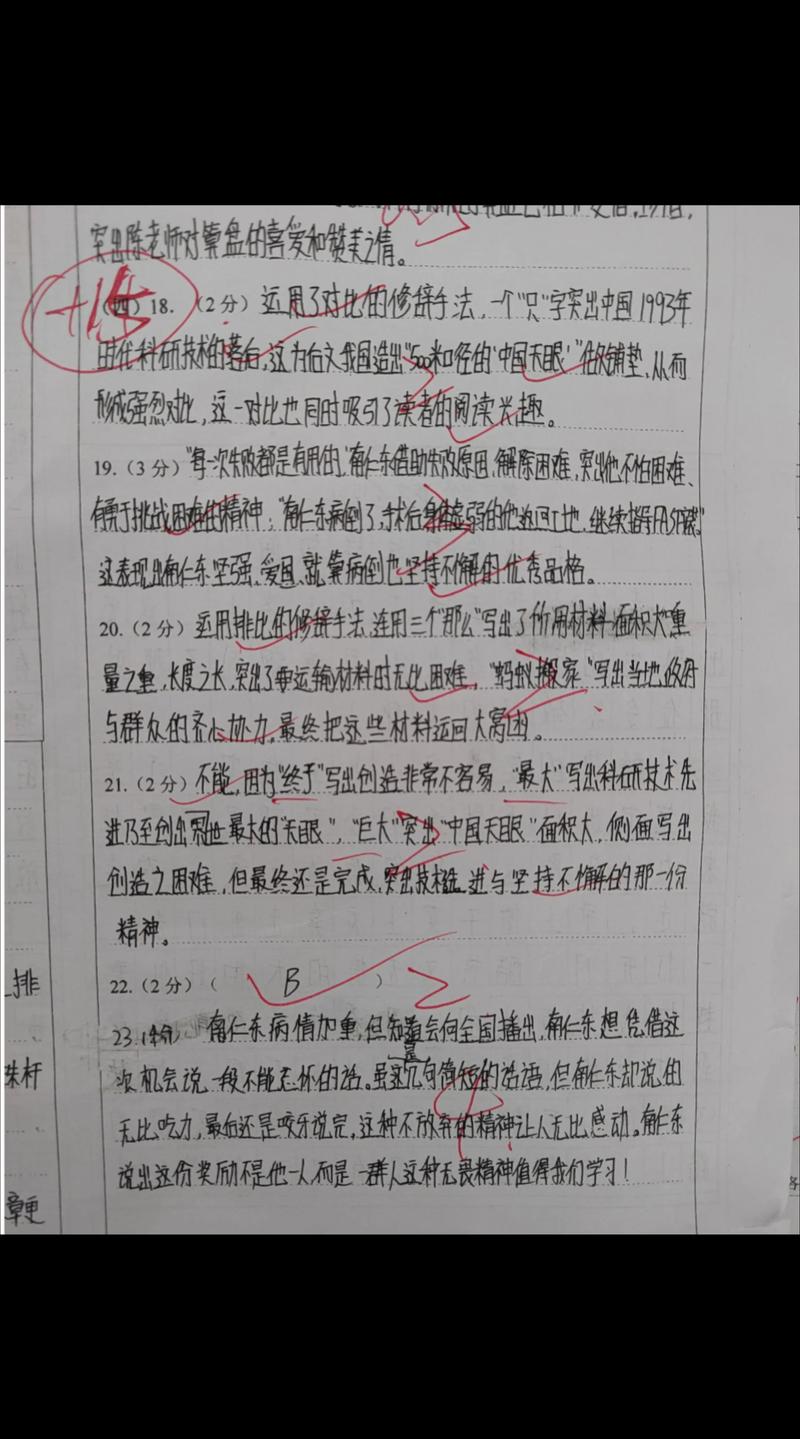 突出陈老师对算盘的喜爱和赞美之情。
(四) 18. (2分) 运用了对比的修辞手法,一个"只"字突出中国1993年
时代科研技术的落后,这为后文我国造出"500米口径的'中国天眼'"做铺垫,从而
形成强烈对比,这一对比也同时吸引了读者的阅读兴趣。
19. (3分) "每一次失败都是有用的",南仁东借助失败原因,解除困难,突出他不怕困难、
勇于挑战困难的精神;"南仁东病倒了,手术后身体虚弱的他返回工地,继续指导
这表现出南仁东坚强、爱国、就算病倒也坚持不懈的优秀品格。
20. (2分) 运用排比的修辞手法,连用三个"那么"写出了所用材料面积大重
量之重,长度之长,突出了要运输材料时无比困难,"蚂蚁搬家"写出当地政府
与群众的齐心协力,最终把这些材料运回大窝凼。
21. (2分) 不能,因为"终于"写出创造非常不容易,"最大"写出科研技术先
进乃至创出世最大的"天眼","巨大"突出"中国天眼"面积大,侧面写出
创造之困难,但最终还是完成,突出技术先进与坚持不懈的那一份
精神。
22. (2分) ( B )
23. (4分) 南仁东病情加重,但知道会向全国播出,南仁东想凭借这
次机会说一段不能忘怀的话。虽是这几句简短的话语,但南仁东却说的
无比吃力,最后还是咬牙说完,这种不放弃的精神让人无比感动。南仁东
说出这份奖励不是他一人,而是一群人这种无畏精神值得我们学习!
排
株杆
章更
+1分